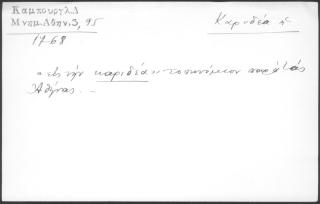 Καμπουργλ.Δ
Μνημ.Αθην.3, 95
Καρυδέα ἡ
1768
"εἰς τὴν καριδέαν" τοπωνύμιον παρὰ τὰς
Ἀθήνας. -